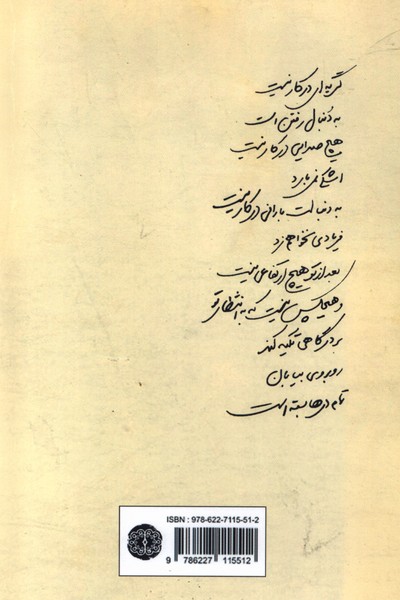 گریه‌ای در کار نیست
به دنبال رفتن است
هیچ صدایی در کار نیست
اشکی نمی‌بارد
به دنبالت بارانی در کار نیست
فریادی نخواهم زد
بعد از تو هیچ ارتفاعی نیست
و هیچکس نیست که به انتظار تو
بر درگاهی تکیه کند
روبروی بیابان
تمام درها بسته است
ISBN : 978-622-7115-51-2
9 786227 115512